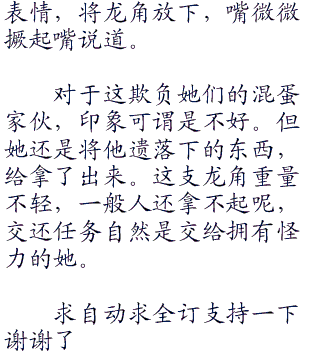 表情，将龙角放下，嘴微微
撅起嘴说道。
对于这欺负她们的混蛋
家伙，印象可谓是不好。但
她还是将他遗落下的东西，
给拿了出来。这支龙角重量
不轻，一般人还拿不起呢，
交还任务自然是交给拥有怪
力的她。
求自动求全订支持一下
谢谢了